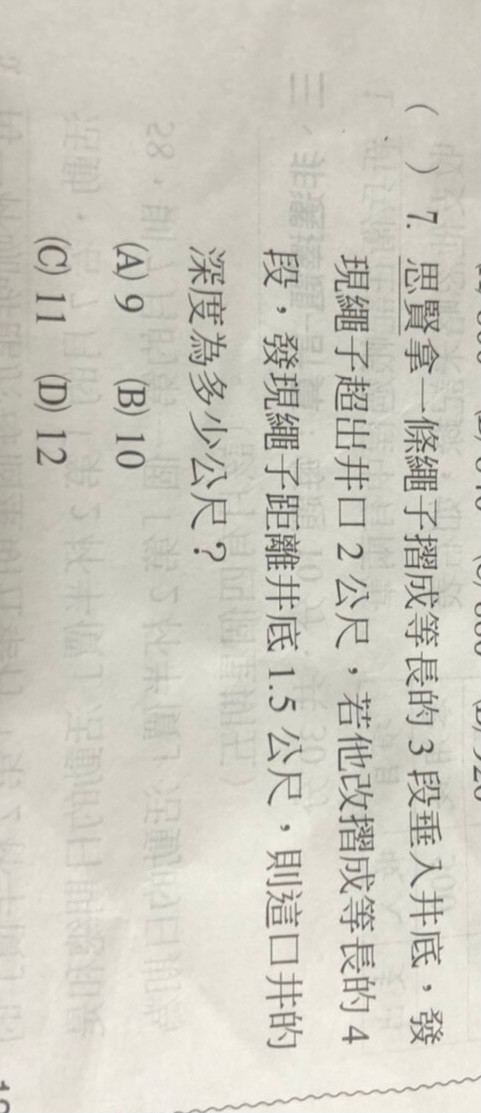 ( ) 7. 思賢拿一條繩子摺成等長的 3 段垂入井底，發
現繩子超出井口 2 公尺，若他改摺成等長的 4
段，發現繩子距離井底 1.5 公尺，則這口井的
深度為多少公尺？
(A) 9 (B) 10
(C) 11 (D) 12